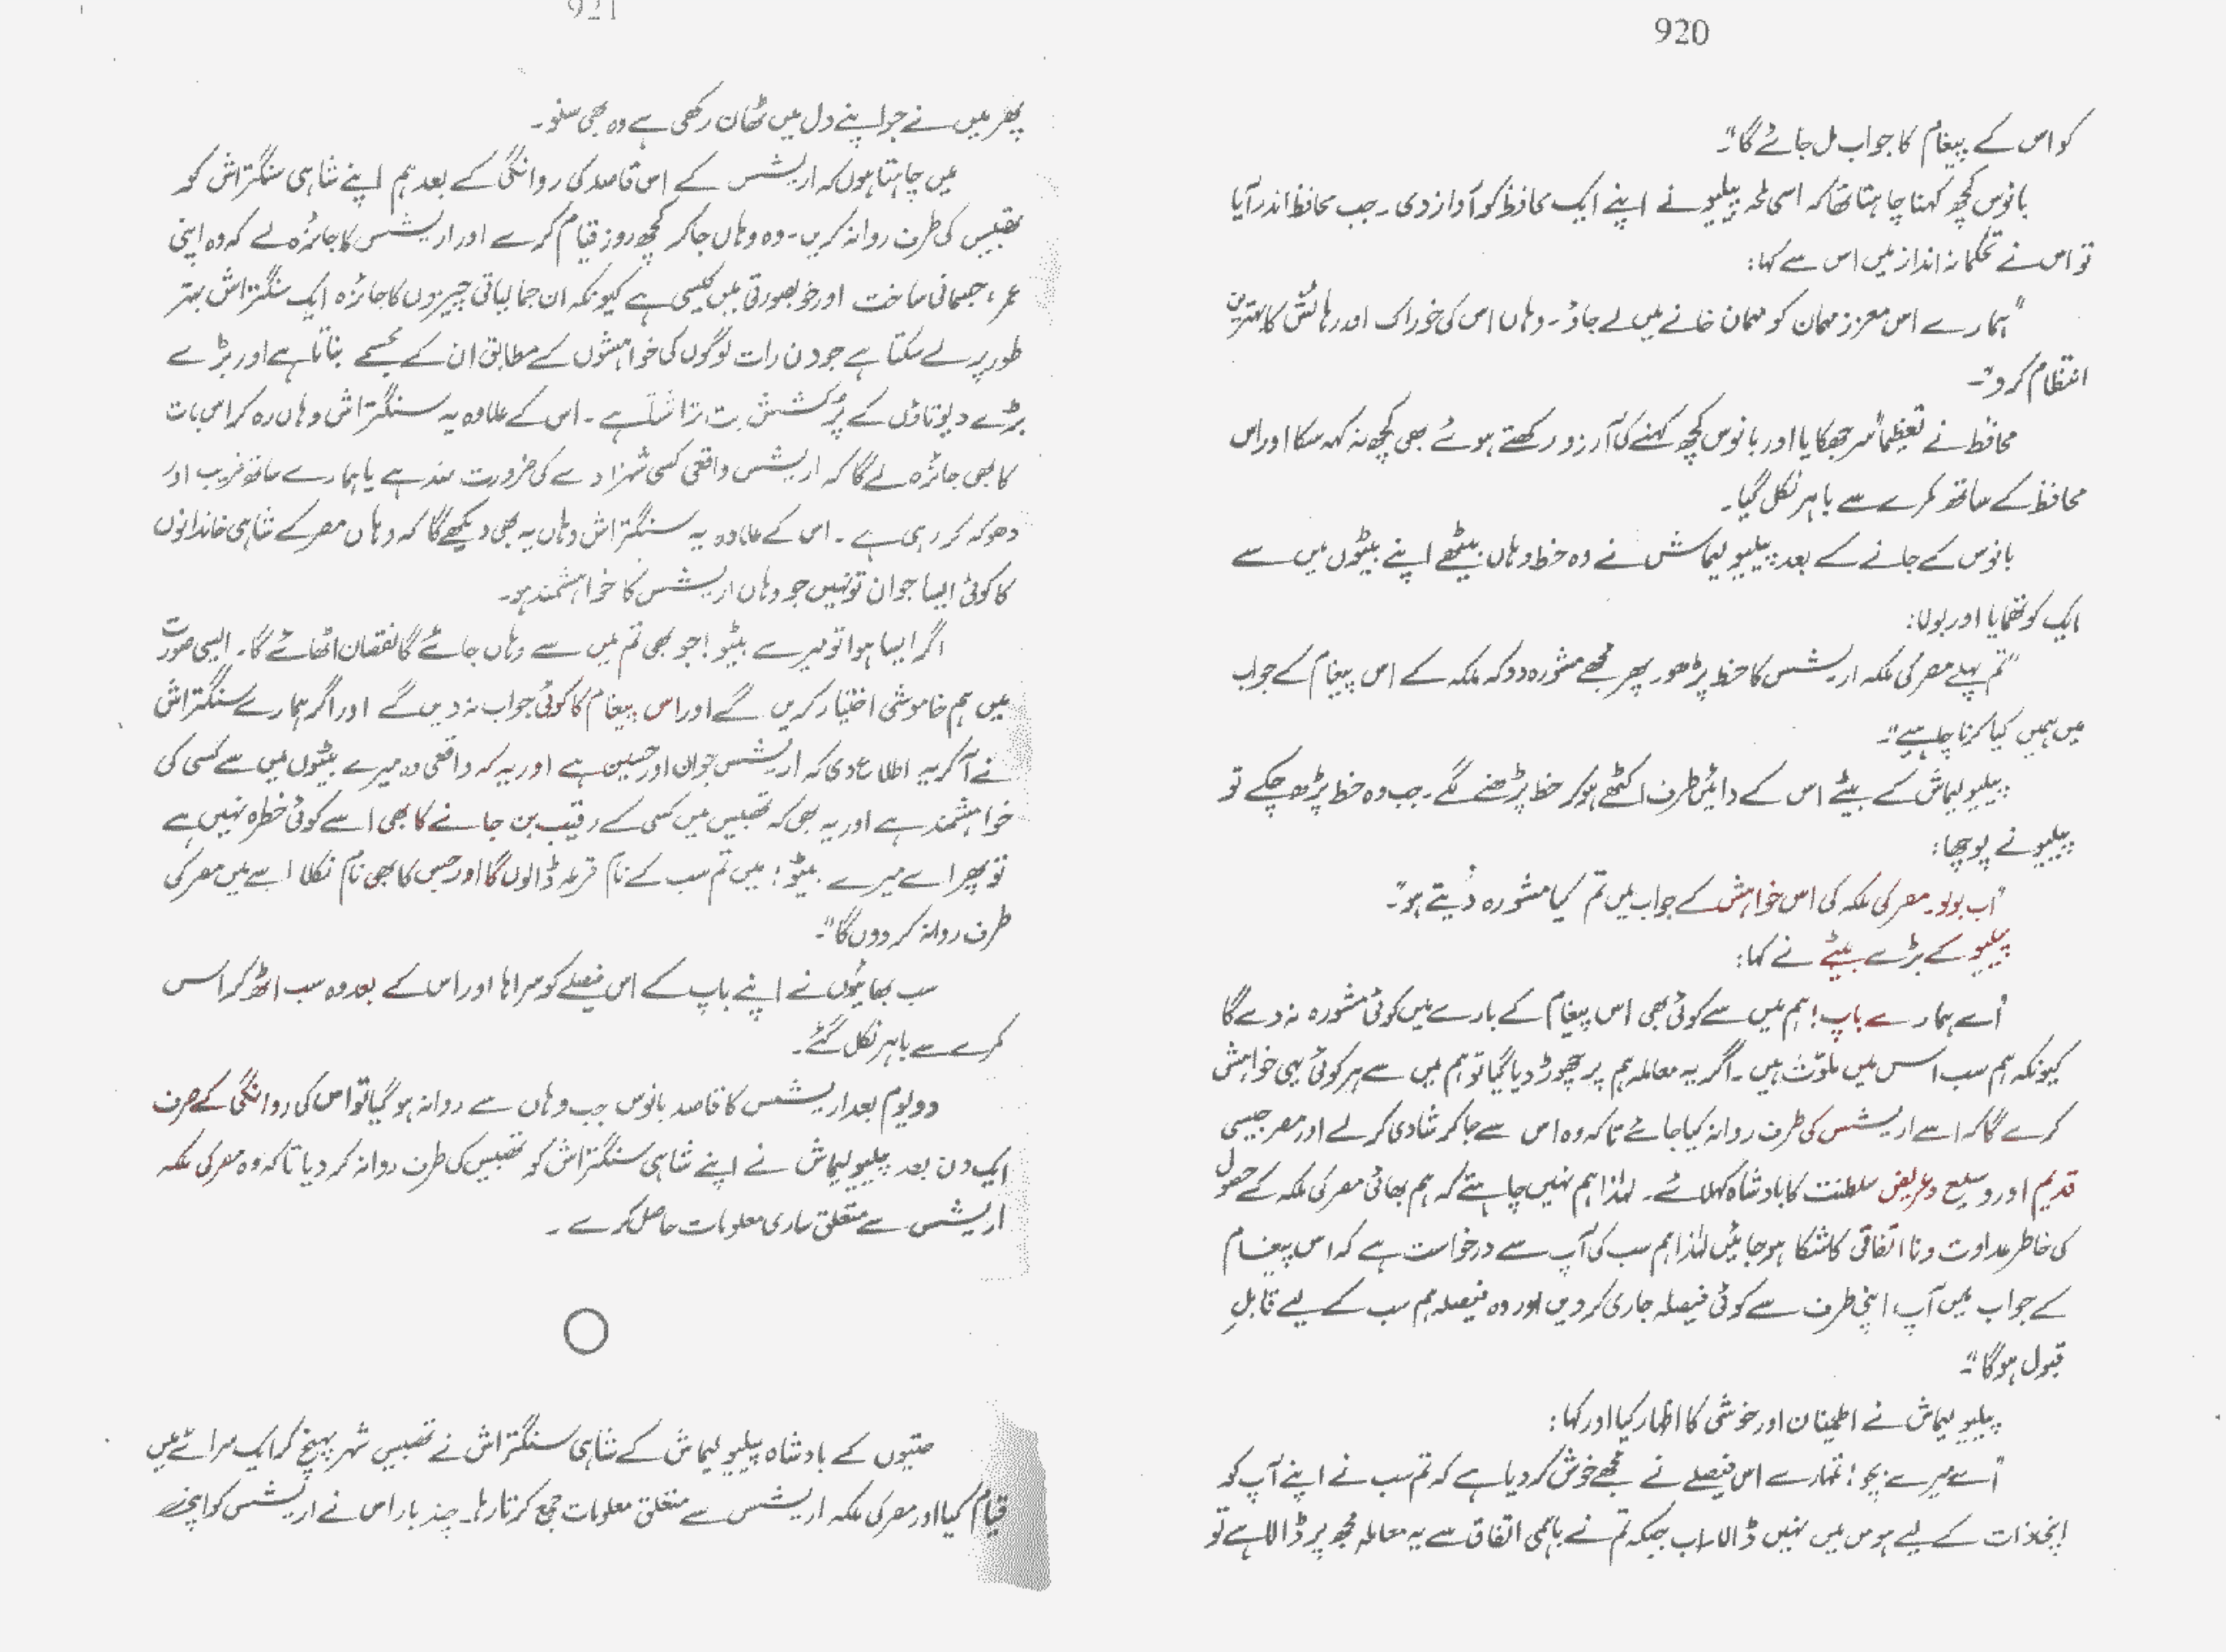 920
کو اس کے پیغام کا جواب مل جائے گا"۔
بانوس کچھ کہنا چاہتا تھا کہ اسی لمحہ پیلیو نے اپنے ایک محافظ کو آواز دی۔ جب محافظ اندر آیا
تو اس نے تحکمانہ انداز میں اس سے کہا:
"ہمارے اس معزز مہمان کو مہمان خانے میں لے جاؤ۔ وہاں اس کی خوراک اور رہائش کا بہترین
انتظام کرو"۔
محافظ نے تعظیماً سر جھکایا اور بانوس کچھ کہنے کی آرزو رکھتے ہوئے بھی کچھ نہ کہہ سکا اور اس
محافظ کے ساتھ کمرے سے باہر نکل گیا۔
بانوس کے جانے کے بعد پیلیو لیماش نے وہ خط وہاں بیٹھے اپنے بیٹوں میں سے
ایک کو تھمایا اور بولا:
"تم پہلے مصر کی ملکہ اریشس کا خط پڑھو۔ پھر مجھے مشورہ دو کہ ملکہ کے اس پیغام کے جواب
میں ہمیں کیا کرنا چاہیے"۔
پیلیو لیماش کے بیٹے اس کے دائیں طرف اکٹھے ہو کر خط پڑھنے لگے۔ جب وہ خط پڑھ چکے تو
پیلیو نے پوچھا:
"اب بولو۔ مصر کی ملکہ کی اس خواہش کے جواب میں تم کیا مشورہ دیتے ہو"۔
پیلیو کے بڑے بیٹے نے کہا:
"اے ہمارے باپ! ہم میں سے کوئی بھی اس پیغام کے بارے میں کوئی مشورہ نہ دے گا
کیونکہ ہم سب اس میں ملوث ہیں۔ اگر یہ معاملہ ہم پر چھوڑ دیا گیا تو ہم میں سے ہر کوئی یہی خواہش
کرے گا کہ اسے اریشس کی طرف روانہ کیا جائے تاکہ وہ اس سے جا کر شادی کر لے اور مصر جیسی
قدیم اور وسیع و عریض سلطنت کا بادشاہ کہلائے۔ لہٰذا ہم نہیں چاہتے کہ ہم بھائی مصر کی ملکہ کے حصول
کی خاطر عداوت و نااتفاقی کا شکا ہو جائیں لہٰذا ہم سب کی آپ سے درخواست ہے کہ اس پیغام
کے جواب میں آپ اپنی طرف سے کوئی فیصلہ جاری کر دیں اور وہ فیصلہ ہم سب کے لیے قابلِ
قبول ہو گا"۔
پیلیو لیماش نے اطمینان اور خوشی کا اظہار کیا اور کہا:
"اے میرے بچو! تمہارے اس فیصلے نے مجھے خوش کر دیا ہے کہ تم سب نے اپنے آپ کو
اپنی ذات کے لیے ہوس میں نہیں ڈالا۔ اب جبکہ تم نے باہمی اتفاق سے یہ معاملہ مجھ پر ڈالا ہے تو
921
پھر میں نے جو اپنے دل میں ٹھان رکھی ہے وہ بھی سنو۔
میں چاہتا ہوں کہ اریشس کے اس قاصد کی روانگی کے بعد ہم اپنے شاہی سنگتراش کو
تھیبس کی طرف روانہ کریں۔ وہ وہاں جا کر کچھ روز قیام کرے اور اریشس کا جائزہ لے کہ وہ اپنی
عمر، جسمانی ساخت اور خوبصورتی میں کیسی ہے کیونکہ ان جمالیاتی چیزوں کا جائزہ ایک سنگتراش بہتر
طور پر لے سکتا ہے جو دن رات لوگوں کی خواہشوں کے مطابق ان کے مجسمے بناتا ہے اور بڑے
بڑے دیوتاؤں کے پُرکشش بت تراشتا ہے۔ اس کے علاوہ یہ سنگتراش وہاں رہ کر اس بات
کا بھی جائزہ لے گا کہ اریشس واقعی کسی شہزادے کی ضرورت مند ہے یا ہمارے ساتھ فریب اور
دھوکہ کر رہی ہے۔ اس کے علاوہ یہ سنگتراش وہاں یہ بھی دیکھے گا کہ وہاں مصر کے شاہی خاندانوں
کا کوئی ایسا جوان تو نہیں جو وہاں اریشس کا خواہشمند ہو۔
اگر ایسا ہوا تو میرے بیٹو! جو بھی تم میں سے وہاں جائے گا نقصان اٹھائے گا۔ ایسی صورت
میں ہم خاموشی اختیار کریں گے اور اس پیغام کا کوئی جواب نہ دیں گے اور اگر ہمارے سنگتراش
نے آ کر یہ اطلاع دی کہ اریشس جوان اور حسین ہے اور یہ کہ واقعی وہ میرے بیٹوں میں سے کسی کی
خواہشمند ہے اور یہ بھی کہ تھیبس میں کسی کے رقیب بن جانے کا بھی اسے کوئی خطرہ نہیں ہے
تو پھر اے میرے بیٹو! میں تم سب کے نام قرعہ ڈالوں گا اور جس کا بھی نام نکلا اسے میں مصر کی
طرف روانہ کر دوں گا"۔
سب بھائیوں نے اپنے باپ کے اس فیصلے کو سراہا اور اس کے بعد وہ سب اٹھ کر اس
کمرے سے باہر نکل گئے۔
دو یوم بعد اریشس کا قاصد بانوس جب وہاں سے روانہ ہو گیا تو اس کی روانگی کے صرف
ایک دن بعد پیلیو لیماش نے اپنے شاہی سنگتراش کو تھیبس کی طرف روانہ کر دیا تاکہ وہ مصر کی ملکہ
اریشس سے متعلق ساری معلومات حاصل کرے۔
حتیوں کے بادشاہ پیلیو لیماش کے شاہی سنگتراش نے تھیبس شہر پہنچ کر ایک سرائے میں
قیام کیا اور مصر کی ملکہ اریشس سے متعلق معلومات جمع کرتا رہا۔ چند بار اس نے اریشس کو اپنے